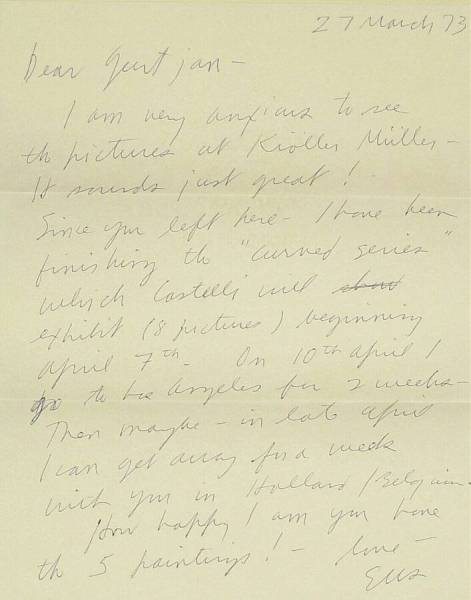 27 March 73
Dear Geert jan -
I am very anxious to see
th pictures at Kröller Müller -
It sounds just great!
Since you left here - I have been
finishing th "curved series"
which Castelli will show
exhibit (8 pictures) beginning
April 7th. On 10th April I
go to Los Angeles for 2 weeks -
Then maybe - in late April
I can get away for a week
with you in Holland / Belgium.
How happy I am you have
th 5 paintings! - love -
Ells